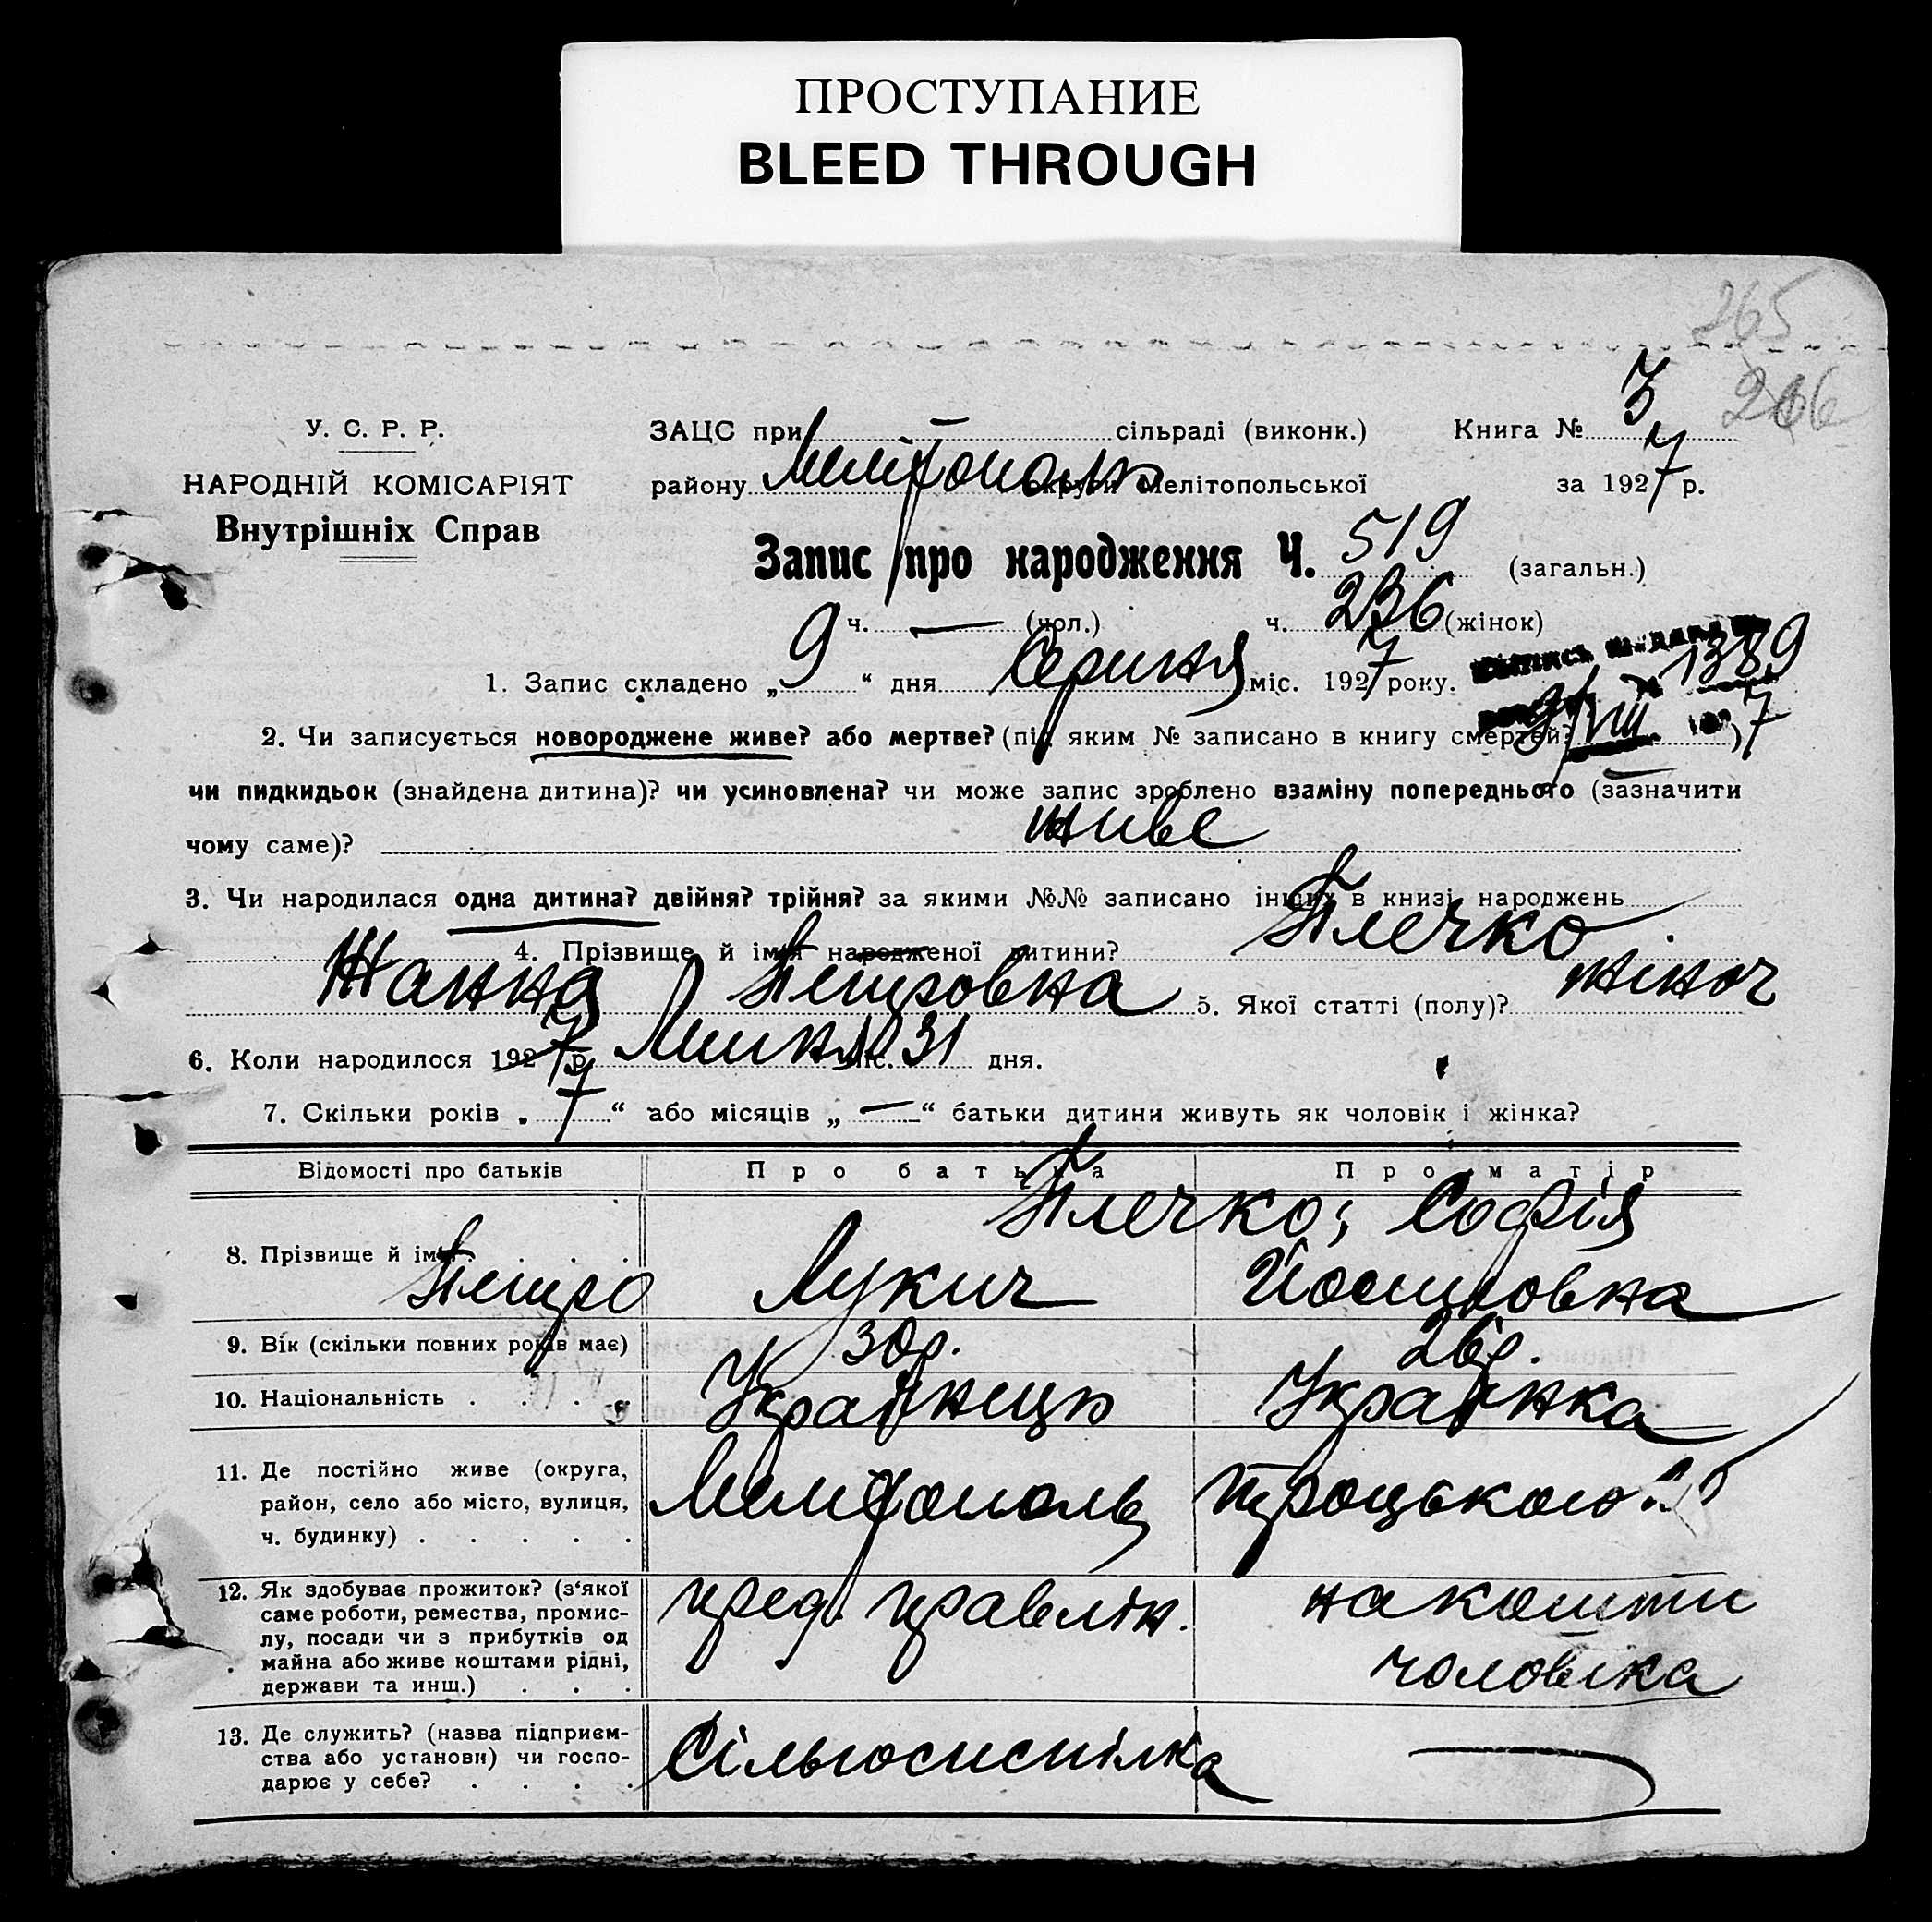 ПРОСТУПАНИЕ
BLEED THROUGH
265
У. С. Р. Р.
НАРОДНІЙ КОМІСАРІЯТ
Внутрішніх Справ
ЗАЦС при сільраді (виконк.) Книга № 3
району Мелітополь округи Мелітопольської за 1927 р.
Запис про народження Ч. 519 (загальн.)
ч. — (чол.) ч. 236 (жінок)
1389
1. Запис складено „ 9 “ дня Серпня міс. 1927 року.
9/VIII 1927
2. Чи записується новороджене живе? або мертве? (під яким № записано в книгу смертей? )
чи пидкидьок (знайдена дитина)? чи усиновлена? чи може запис зроблено взаміну попереднього (зазначити
чому саме)? живе
3. Чи народилася одна дитина? двійня? трійня? за якими №№ записано інших в книзі народжень
4. Прізвище й імя народженої дитини? Плечко
Жанна Петровна 5. Якої статті (полу)? жіноч
6. Коли народилося 1927 р. Липня міс. 31 дня.
7. Скільки років „ 7 “ або місяців „ — “ батьки дитини живуть як чоловік і жінка?
Відомості про батьків Про батька Про матір
Плечко; Софія
8. Прізвище й імя
Петро Лукич Йосиповна
9. Вік (скільки повних років має) 30р. 26р.
10. Національність Українець Українка
11. Де постійно живе (округа,
район, село або місто, вулиця, Мелітополь Троцького
ч. будинку)
12. Як здобуває прожиток? (з‘якої пред. правлін. на кошти
саме роботи, ремества, промис-
лу, посади чи з прибутків од
майна або живе коштами рідні, чоловіка
держави та инш.)
13. Де служить? (назва підприєм-
ства або установи) чи госпо- Сільгоспспілка —
дарює у себе?